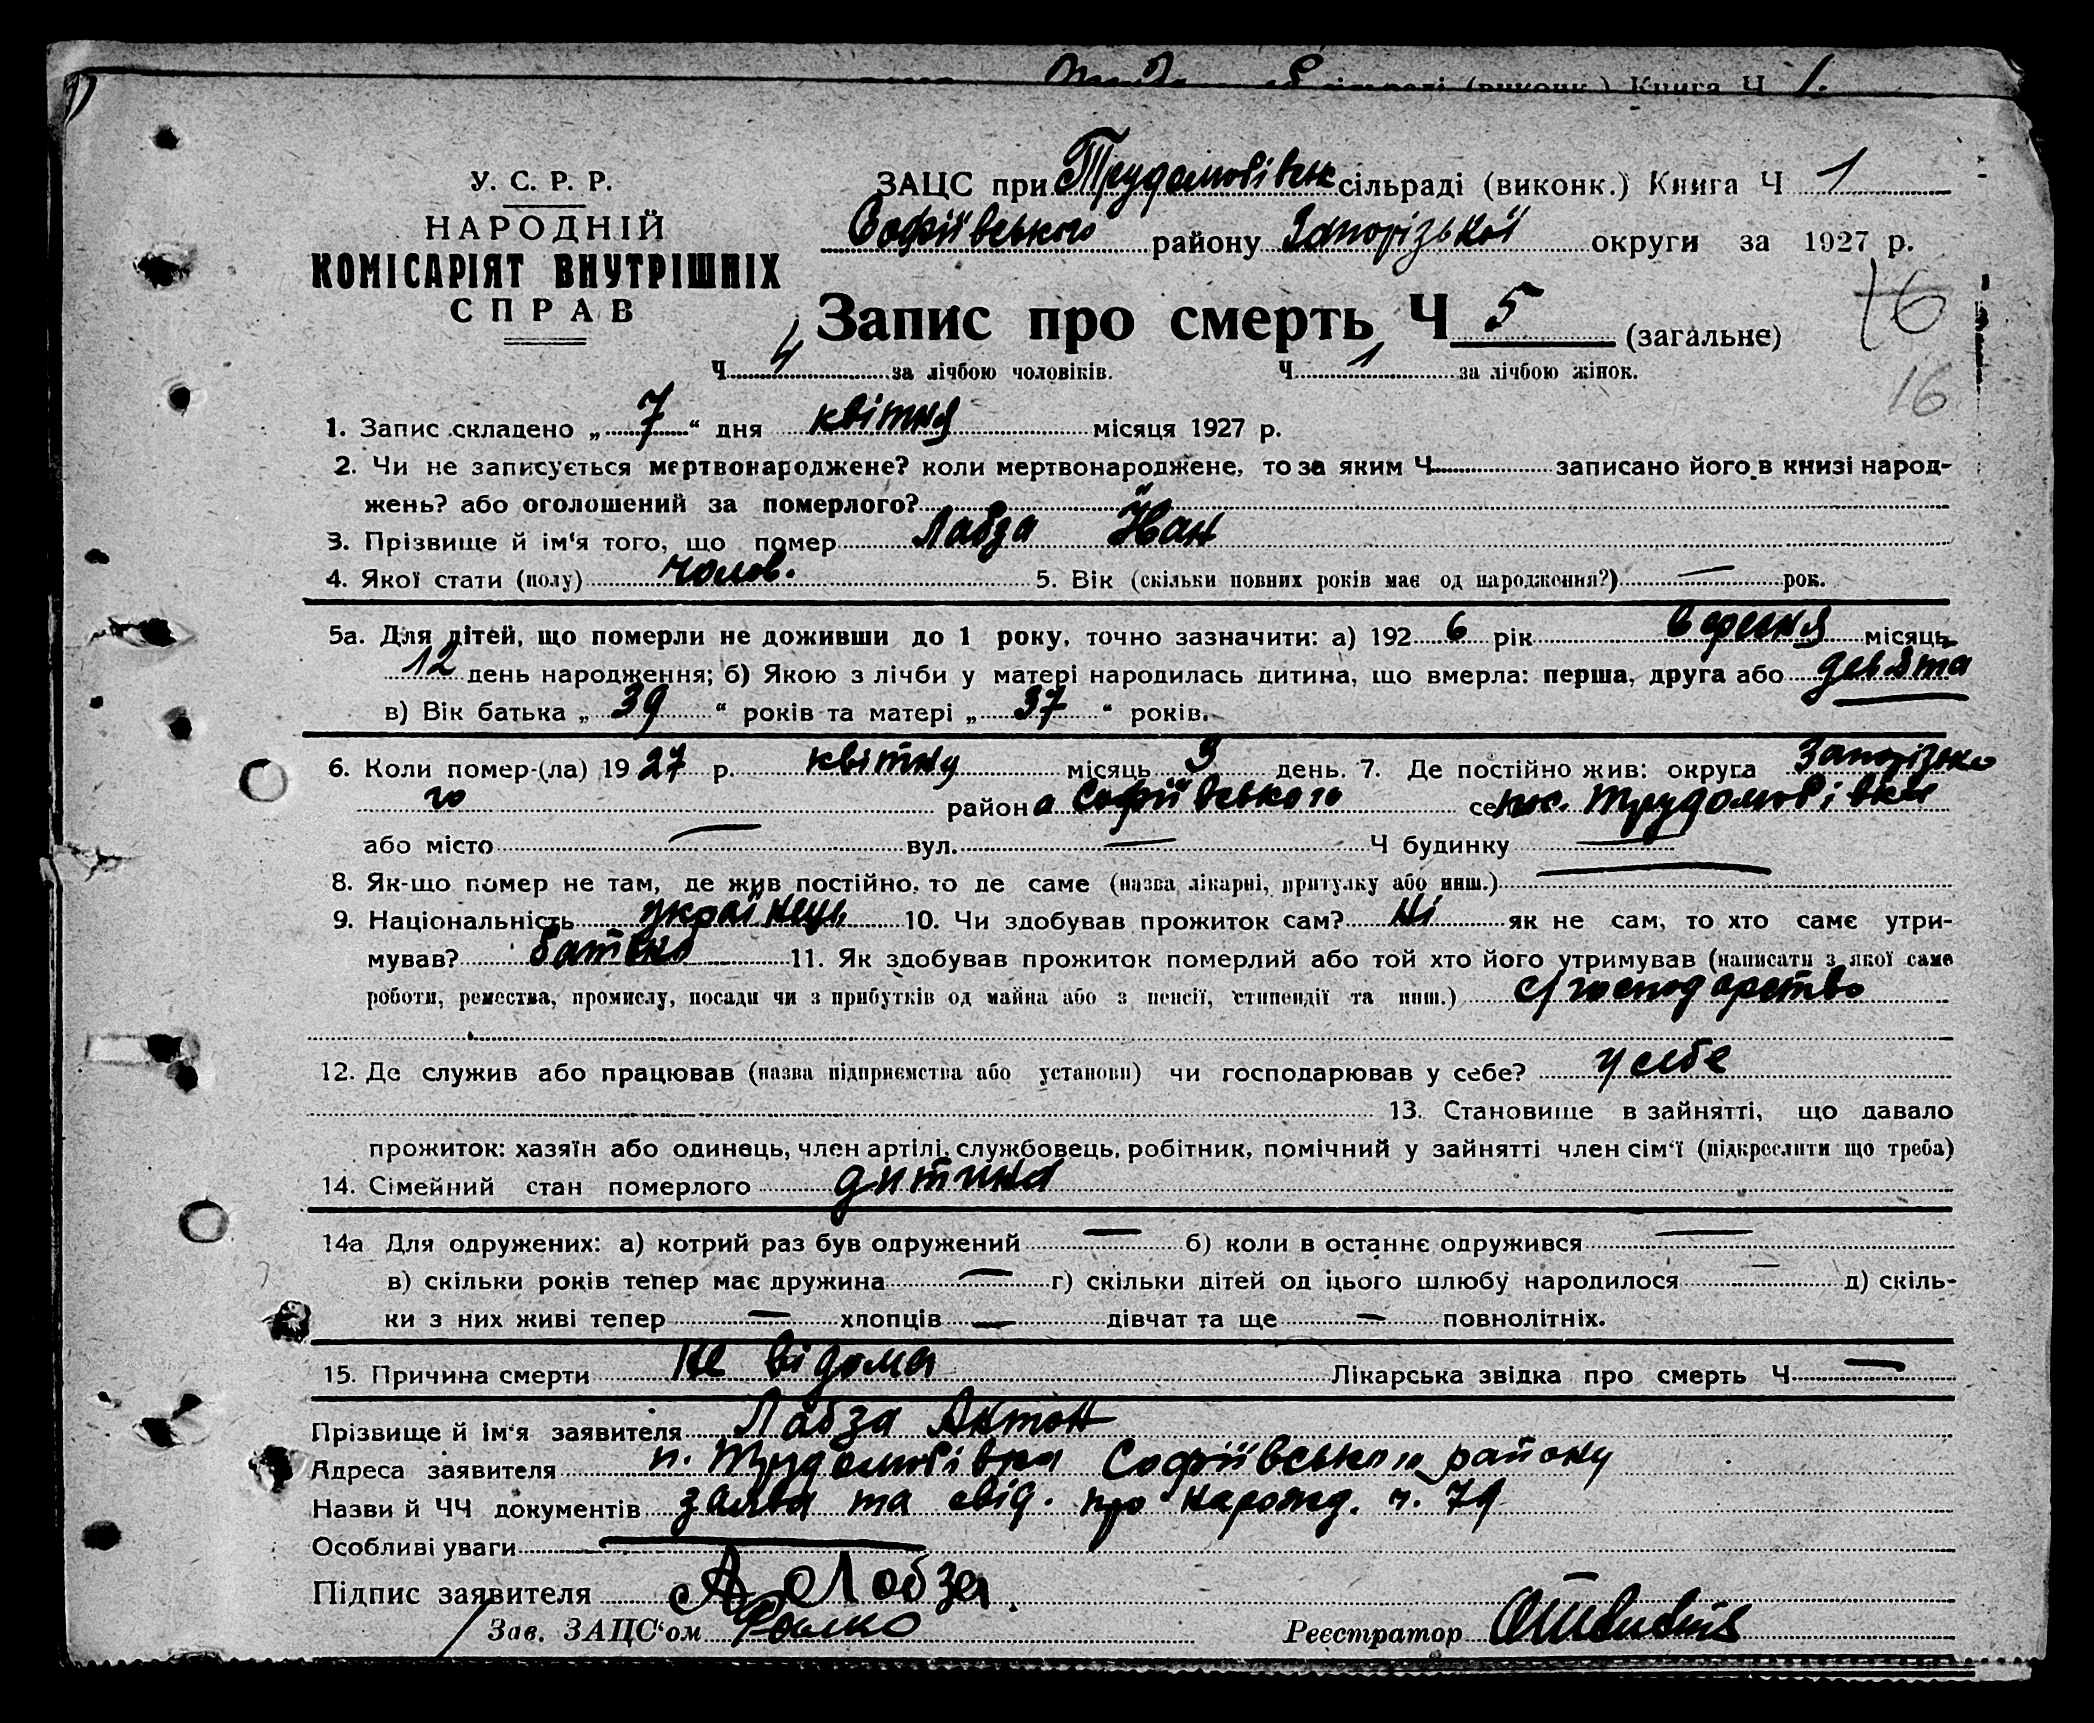 сільраді (виконк.) Книга Ч 1.
У. С. Р. Р.
НАРОДНІЙ
КОМІСАРІЯТ ВНУТРІШНІХ
СПРАВ
ЗАЦС при Трудолюбівськ сільраді (виконк.) Книга Ч 1
Софіївського району Запорізької округи за 1927 р.
Запис про смерть Ч 5 (загальне)
16
Ч 4 за лічбою чоловіків. Ч 1 за лічбою жінок.
16
1. Запис складено „ 7 “ дня квітня місяця 1927 р.
2. Чи не записується мертвонароджене? коли мертвонароджене, то за яким Ч записано його в книзі народ-
жень? або оголошений за померлого?
3. Прізвище й ім‘я того, що помер Лабза Йван
4. Якої стати (полу) чолов. 5. Вік (скільки повних років має од народження?) — рок.
5а. Для дітей, що померли не доживши до 1 року, точно зазначити: а) 192 6 рік вересня місяць
12 день народження; б) Якою з лічби у матері народилась дитина, що вмерла: перша, друга або девята
в) Вік батька „ 39 “ років та матері „ 37 “ років.
6. Коли помер-(ла) 19 27 р. квітня місяць 3 день. 7. Де постійно жив: округа Запорізько
го район а Софіївського се пос. Трудолюбівки
або місто — вул. — Ч будинку —
8. Як-що помер не там, де жив постійно, то де саме (назва лікарні, притулку або инш.) —
9. Національність українець 10. Чи здобував прожиток сам? Ні як не сам, то хто саме утри-
мував? батько 11. Як здобував прожиток померлий або той хто його утримував (написати з якої саме
роботи, ремества, промислу, посади чи з прибутків од майна або з пенсії, стипендії та инш.) с/господарство
12. Де служив або працював (назва підприємства або установи) чи господарював у себе? у себе
13. Становище в зайнятті, що давало
прожиток: хазяїн або одинець, член артілі, службовець, робітник, помічний у зайнятті член сім‘ї (підкреслити що треба)
14. Сімейний стан померлого дитина
14а Для одружених: а) котрий раз був одружений — б) коли в останнє одружився —
в) скільки років тепер має дружина — г) скільки дітей од цього шлюбу народилося — д) скіль-
ки з них живі тепер — хлопців — дівчат та ще — повнолітніх.
15. Причина смерти не відома Лікарська звідка про смерть Ч —
Прізвище й ім‘я заявителя Лабза Антон
Адреса заявителя п. Трудолюбівка Софіївського району
Назви й ЧЧ документів заява та свід. про нарожд. ч. 79
Особливі уваги —
Підпис заявителя А Лобза.
Зав. ЗАЦС‘ом Реєстратор